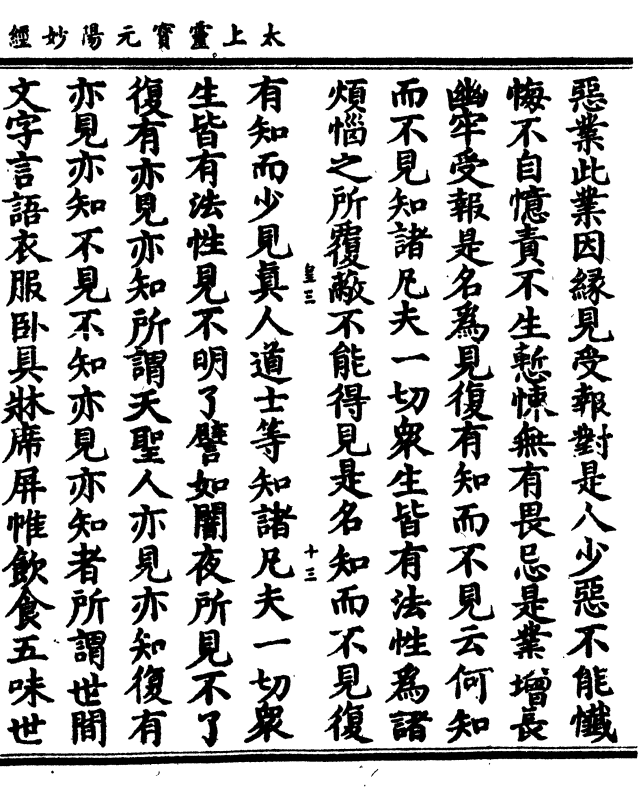 太上靈寶元陽妙經
惡業此業因緣見受報對是人少惡不能懺
悔不自憶責不生慙悚無有畏忌是業增長
幽牢受報是名為見復有知而不見云何知
而不見知諸凡夫一切衆生皆有法性為諸
煩惱之所覆蔽不能得見是名知而不見復
皇三
十三
有知而少見真人道士等知諸凡夫一切衆
生皆有法性見不明了譬如闇夜所見不了
復有亦見亦知所謂天聖人亦見亦知復有
亦見亦知不見不知亦見亦知者所謂世間
文字言語衣服卧具牀席屏帷飲食五味世